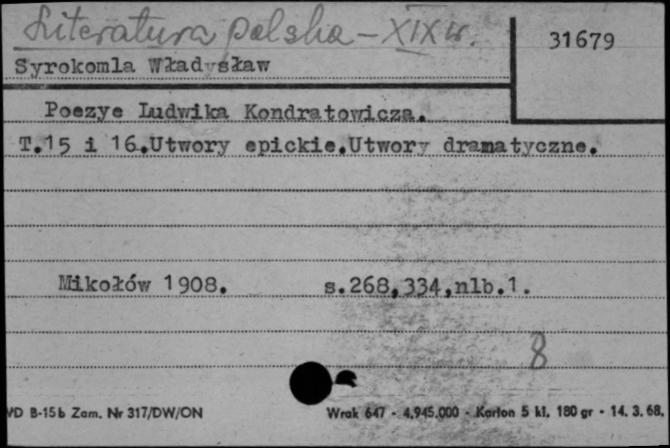 Literatura polska - XIX w.
31679
Syrokomla Władysław
Poezye Ludwika Kondratowicza.
T.15 i 16.Utwory epickie.Utwory dramatyczne.
Mikołów 1908. s.268,334,nlb.1.
8
WD B-15b Zam. Nr 317/DW/ON Wrak 647 - 4.945.000 - Karton 5 kl. 180 gr - 14. 3. 68.